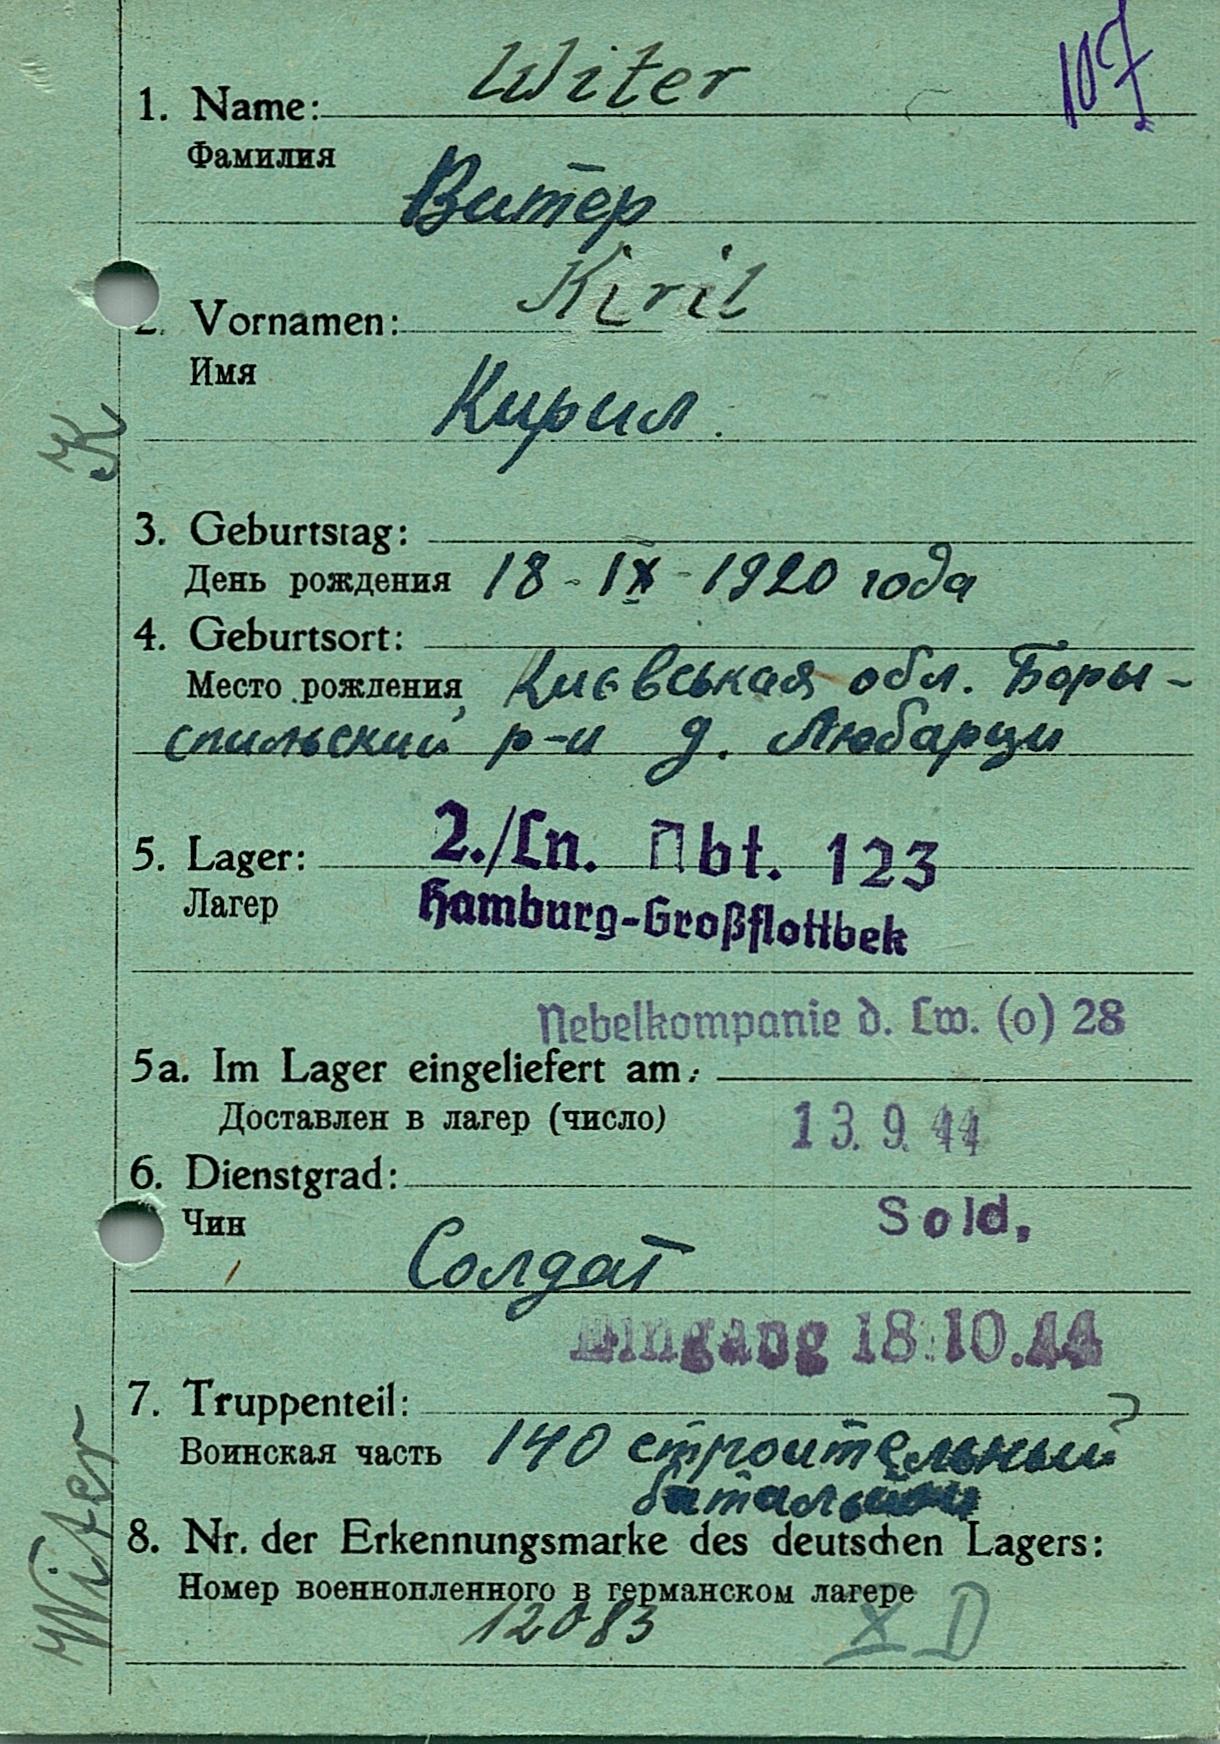 107
Witer
1. Name:
Фамилия
Витер
Kiril
2. Vornamen:
Имя
Кирил.
K
3. Geburtstag:
День рождения 18-IX-1920 года
4. Geburtsort:
Место рождения, Києвськая обл. Боры-
спильский р-н д. Любарци
5. Lager: 2./Ln. Abt. 123
Лагер Hamburg-Großflottbek
Nebelkompanie d. Lw. (o) 28
5a. Im Lager eingeliefert am:
Доставлен в лагер (число) 13.9.44
6. Dienstgrad:
Чин Sold.
Солдат
Eingang 18.10.44
7. Truppenteil:
Воинская часть 140 строительный
батальйон
8. Nr. der Erkennungsmarke des deutschen Lagers:
Номер военнопленного в германском лагере
12083 X D
Witer